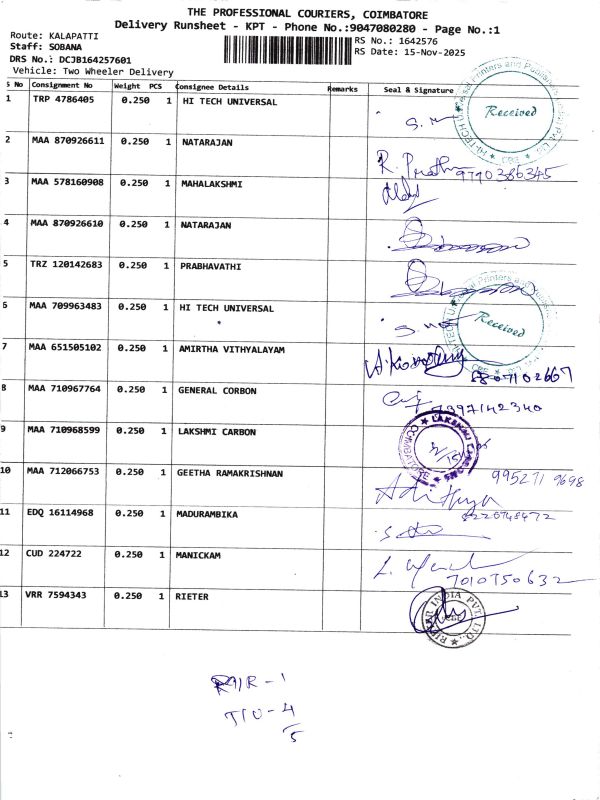 THE PROFESSIONAL COURIERS, COIMBATORE
Delivery Runsheet - KPT - Phone No.:9047080280 - Page No.:1
Route: KALAPATTI
Staff: SOBANA
DRS No.: DCJB164257601
Vehicle: Two Wheeler Delivery
RS No.: 1642576
RS Date: 15-Nov-2025
S No Consignment No Weight PCS Consignee Details Remarks Seal & Signature
1 TRP 4786405 0.250 1 HI TECH UNIVERSAL Received
2 MAA 870926611 0.250 1 NATARAJAN 9790386345
3 MAA 578160908 0.250 1 MAHALAKSHMI
4 MAA 870926610 0.250 1 NATARAJAN
5 TRZ 120142683 0.250 1 PRABHAVATHI
6 MAA 709963483 0.250 1 HI TECH UNIVERSAL Received
7 MAA 651505102 0.250 1 AMIRTHA VITHYALAYAM 8807102667
8 MAA 710967764 0.250 1 GENERAL CORBON 7397142340
9 MAA 710968599 0.250 1 LAKSHMI CARBON
10 MAA 712066753 0.250 1 GEETHA RAMAKRISHNAN Adithya
11 EDQ 16114968 0.250 1 MADURAMBIKA
12 CUD 224722 0.250 1 MANICKAM 7010750632
13 VRR 7594343 0.250 1 RIETER INDIA PVT. LTD.